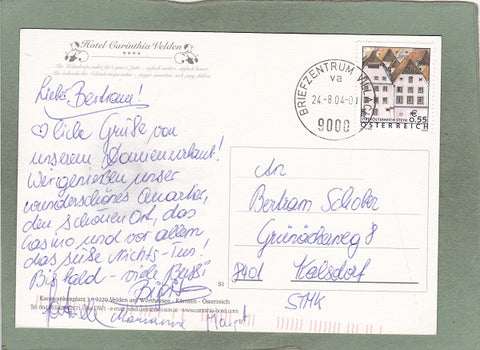 Hotel Carinthia Velden
****
Lieber Bertram!
♡liche Grüße von
unserem Damenurlaub!
Wir genießen unser
wunderschönes Quartier,
den schönen Ort, das
Casino und vor allem
das süße Nichts-Tun!
Bis bald - viele Bussi
Marianne Margot
Karawankenplatz 3 • 9220 Velden am Wörthersee • Kärnten • Österreich
www.carinthia-hotel.com
BRIEFZENTRUM VILLACH
va
24.-8.04-0
9000
€ 0.55
ÖSTERREICH
An
Bertram Schober
8401 Kalsdorf
STMK